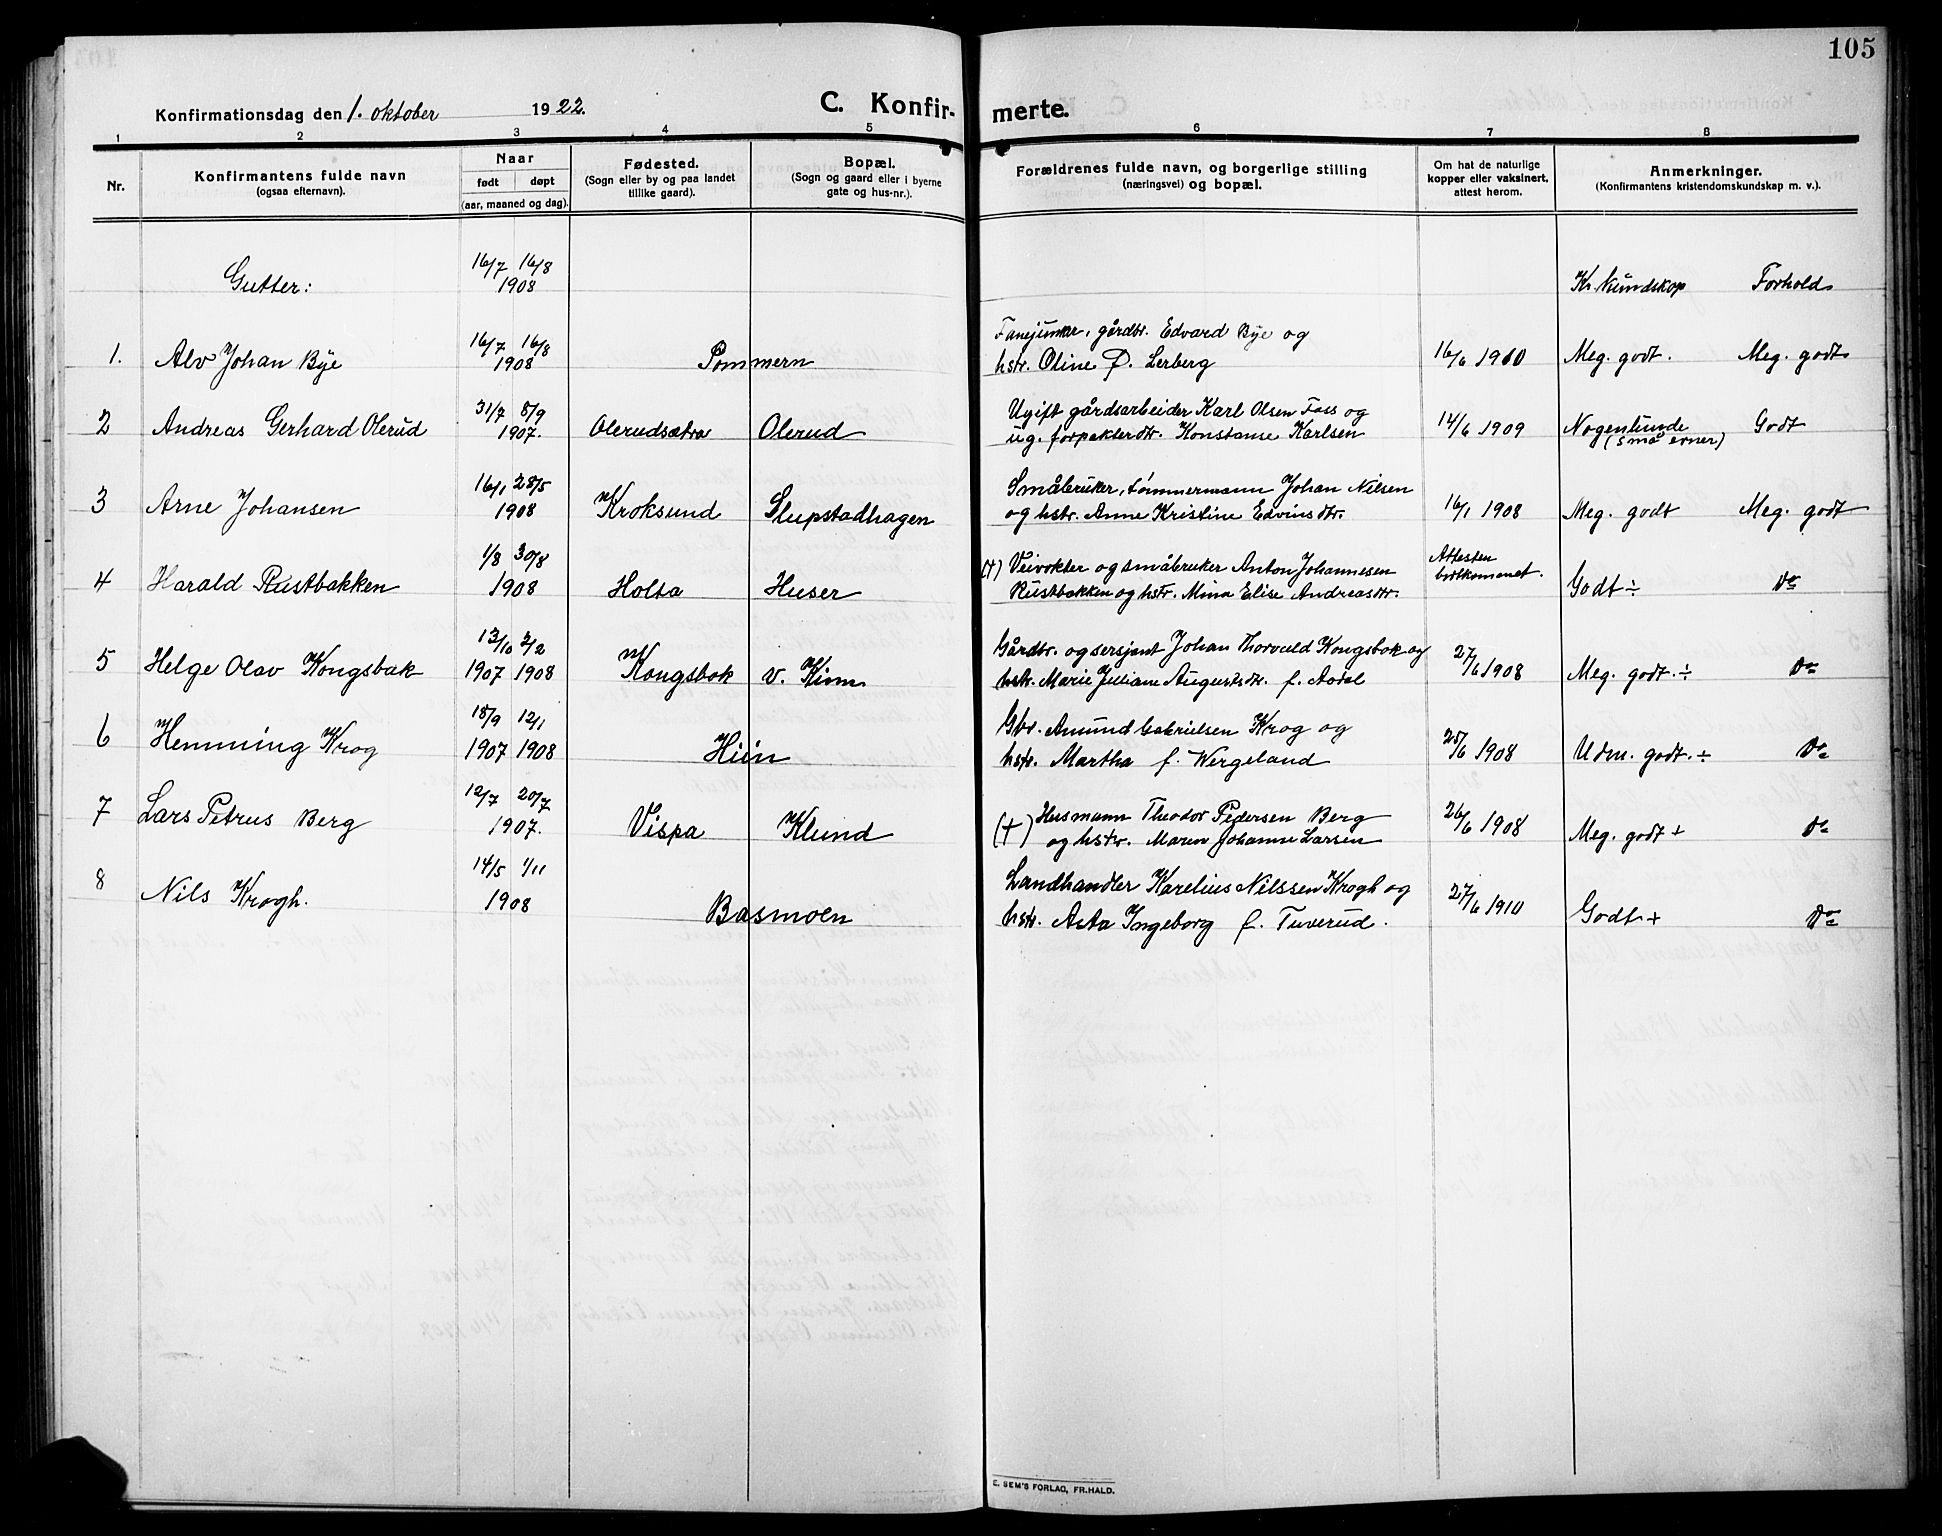 105
Konfirmationsdag den 1. oktober 1922.
C. Konfirmerte.
1 2 3 4 5 6 7 8
Nr.
Konfirmantens fulde navn
(ogsaa efternavn).
Naar
født døpt
(aar, maaned og dag).
Fødested.
(Sogn eller by og paa landet
tillike gaard).
Bopæl.
(Sogn og gaard eller i byerne
gate og hus-nr.).
Forældrenes fulde navn, og borgerlige stilling
(næringsvei) og bopæl.
Om hat de naturlige
kopper eller vaksinert,
attest herom.
Anmerkninger.
(Konfirmantens kristendomskundskap m. v.).
Gutter:
16/7 16/8
1908
Kr. kundskap Forhold
1. Alv Johan Bye
16/7 16/8
1908
Pommern
Fanejunker, gårdbr. Edvard Bye og
hstr. Oline P. Lerberg
16/6 1910 Meg. godt. Meg. godt
2 Andreas Gerhard Olerud
31/7 8/9
1907.
Olerudsætra Olerud
Ugift gårdsarbeider Karl Olsen Foss og
ug. forpakterdtr. Konstanse Karlsen
14/6 1909 Nogenlunde Godt
(små evner)
3 Arne Johansen
16/1 28/5
1908
Kroksund Slupstadhagen
Småbruker, tømmermann Johan Nilsen
og hstr. Anne Kristine Edvinsdtr.
16/1 1908 Meg. godt Meg. godt
4 Harald Rustbakken
1/8 30/8
1908
Holta Huser
(+) Veivokter og småbruker Anton Johannesen
Rustbakken og hstr. Mina Elise Andreasdtr.
Attesten
bortkommet.
Godt ÷ Do
5 Helge Olav Kongsbak
13/10 2/2
1907 1908
Kongsbok v. Kinn
Gårdbr. og sersjant Johan Thorvald Kongsbok og
hstr. Marie Juliane Augustsdtr. f. Aadal
27/6 1908 Meg. godt. ÷ Do
6 Hemming Krog
18/9 12/1
1907 1908
Hiin
Gbr. Amund Gabrielsen Krog og
hstr. Martha f. Wergeland
25/6 1908 Udm. godt. ÷ Do
7 Lars Petrus Berg
12/7 20/7
1907.
Vispa Klund
(+) Husmann Theodor Pedersen Berg
og hstr. Maren Johanne Larsen
26/6 1908 Meg. godt + Do
8 Nils Krogh.
14/5 1/11
1908
Basmoen
Landhandler Karelius Nilssen Krogh og
hstr. Asta Ingeborg f. Tuverud.
27/6 1910 Godt + Do
E. SEM'S FORLAG, FR.HALD.